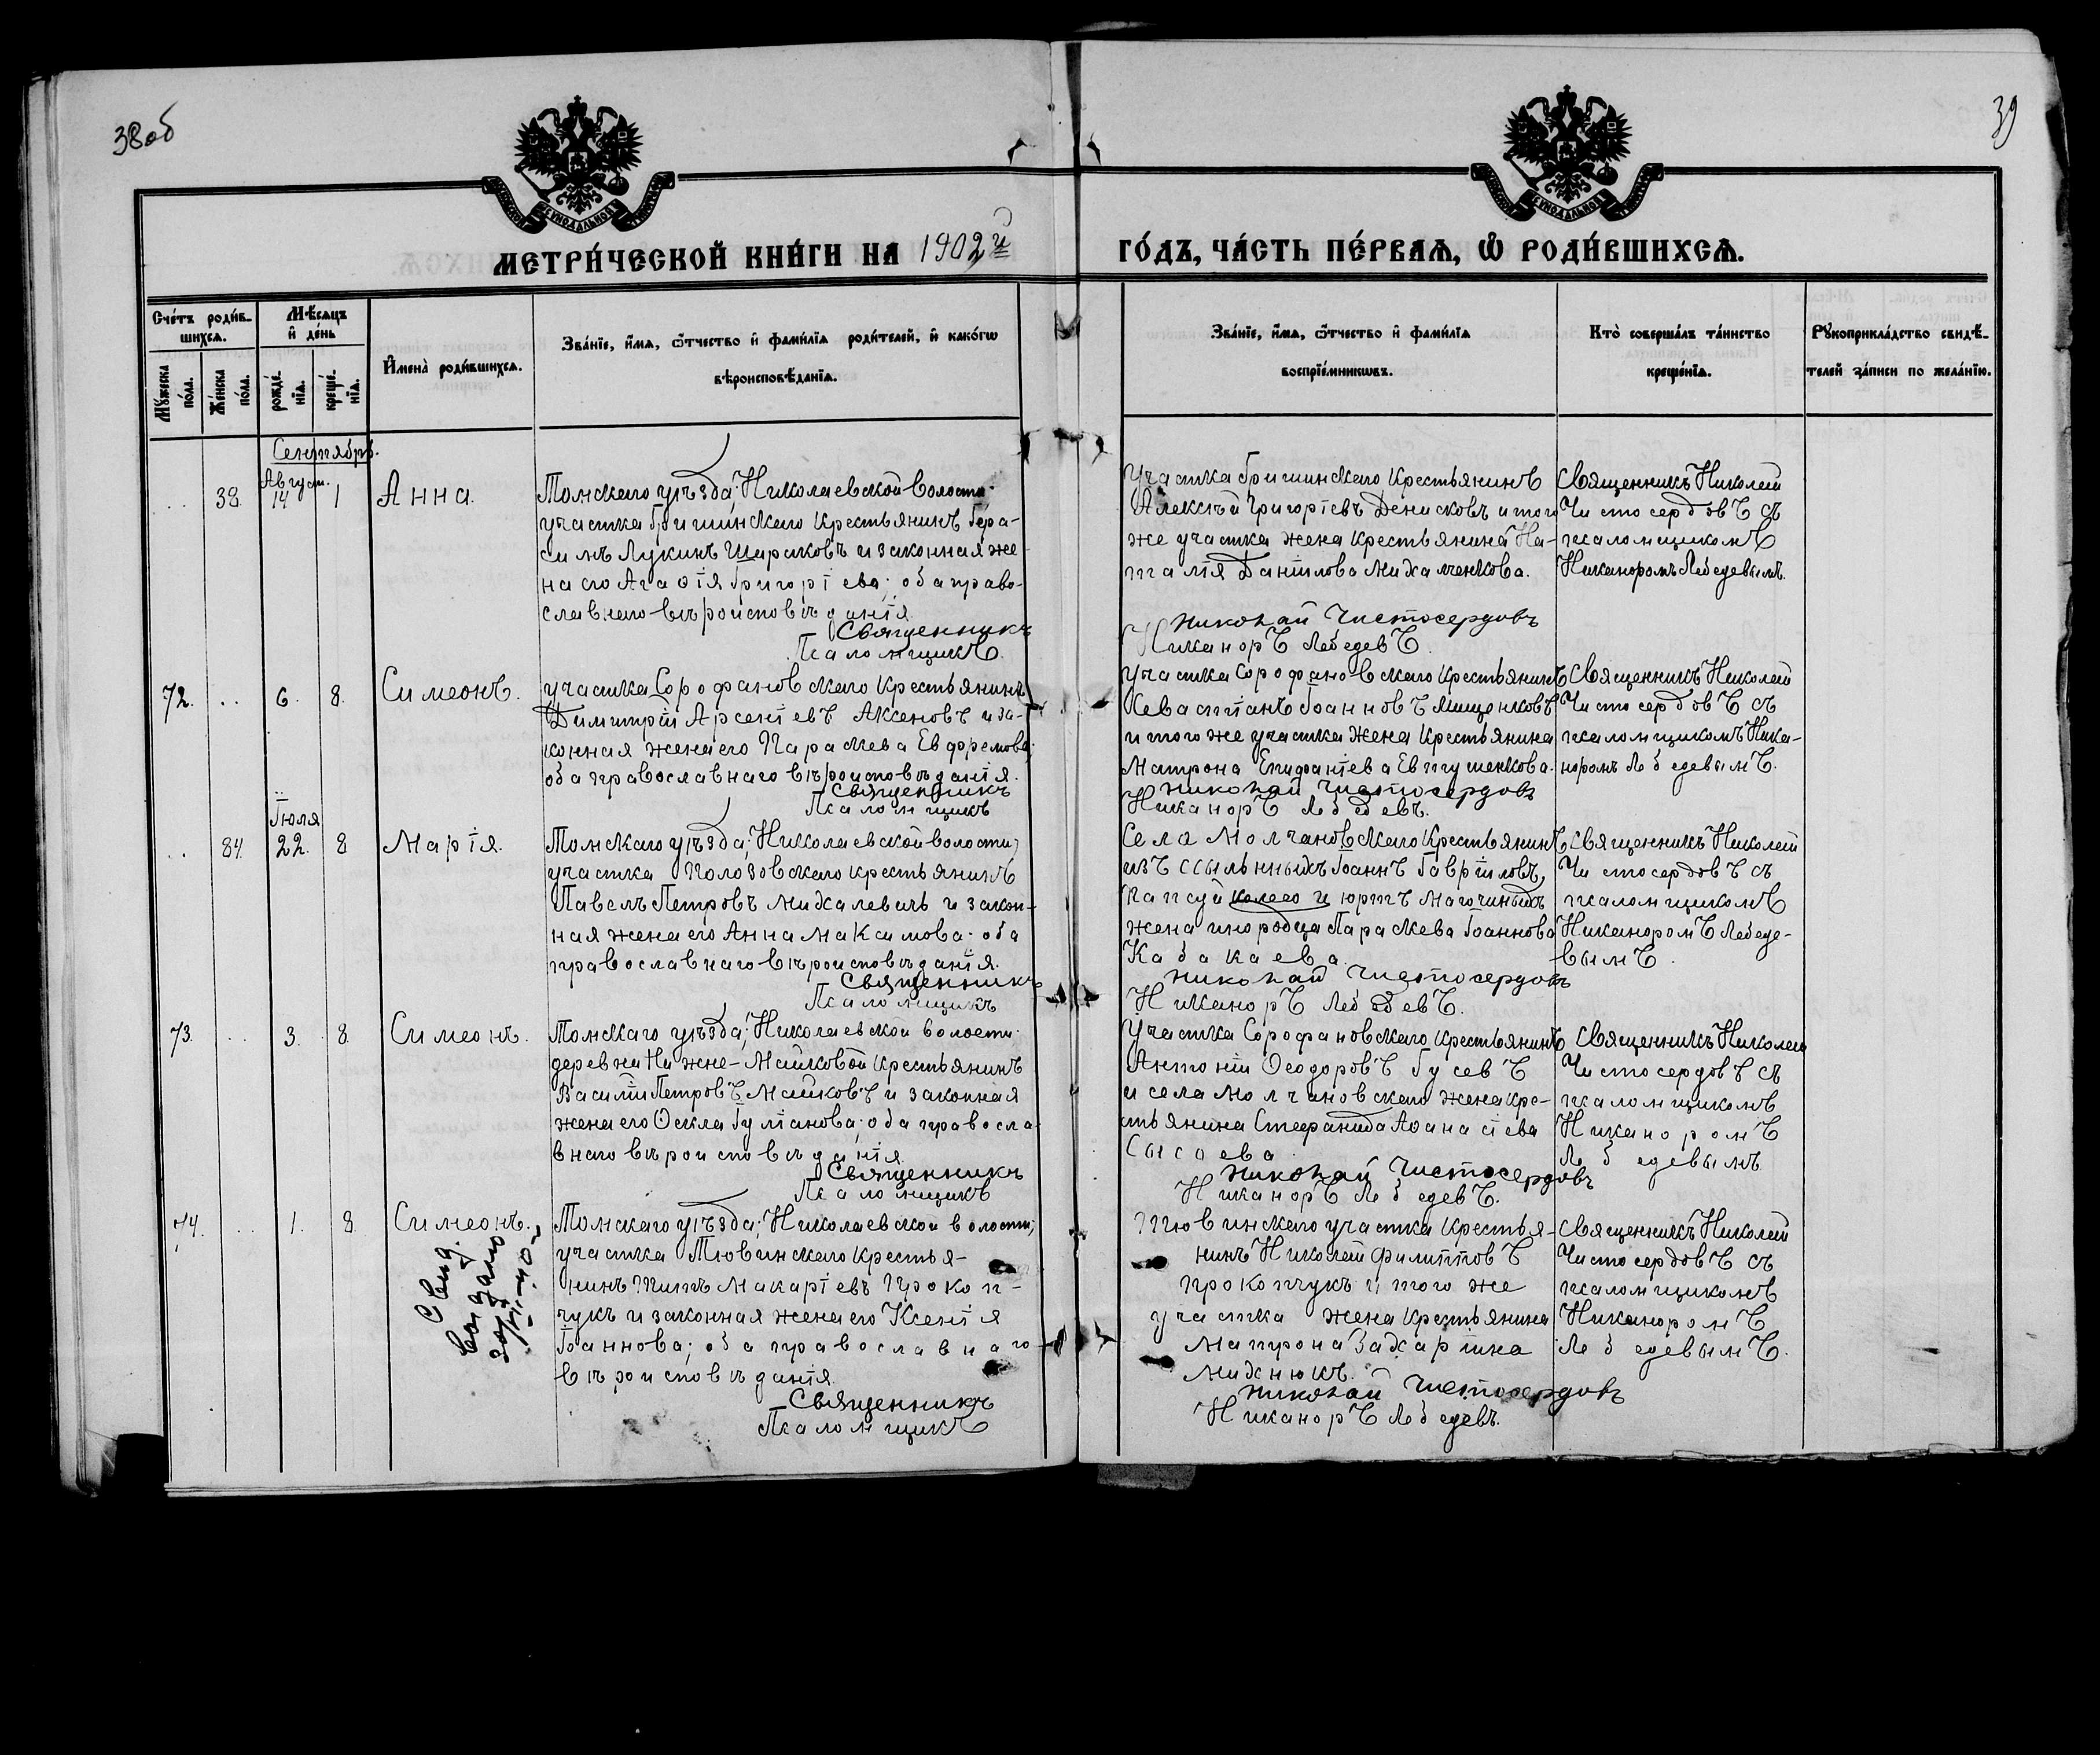 38об
39
МЕТРИ́ЧЕСКОЙ КНИ́ГИ НА 1902й
ГО́ДЪ, ЧА́СТЬ ПЕ́РВАѦ, Ѿ РОДИ́ВШИХСѦ.
Сче́тъ роди́в-
шихсѧ.
Мꙋ́жеска
по́ла.
Же́нска
по́ла.
Мѣ́сѧцъ
и҆ де́нь
рожде́-
нїѧ.
креще́-
нїѧ.
И҆мена̀ роди́вшихсѧ.
Зва́нїе, и҆́мѧ, ѻ҆́тчество и҆ фами́лїѧ роди́телей, и҆ како́гѡ
вѣроисповѣ́данїѧ.
Зва́нїе, и҆́мѧ, ѻ҆́тчество и҆ фами́лїѧ
воспрїе́мникѡвъ.
Кто̀ соверша́лъ та́инство
креще́нїѧ.
Рꙋкоприкла́дство свидѣ́-
телей за́писи по жела́нїю.
Сентябрь.
Август.
38. 14 1 Анна.
Томскаго уѣзда; Николаевской волости;
участка Гришинскаго крестьянинъ Гера-
симъ Лукинъ Шираковъ и законная же-
на его Агаѳiя Григорiева; оба право-
славнаго вѣроисповѣданiя.
Священникъ
Псаломщикъ
Участка Гришинскаго крестьянинъ
Алексѣй Григорiевъ Денисковъ и того
же участка жена крестьянина На-
талiя Данiилова Михалченкова.
Николай Чистосердовъ
Никаноръ Лебедевъ.
Священникъ Николай
Чистосердовъ съ
псаломщикомъ
Никаноромъ Лебедевымъ.
72. 6. 8. Симеонъ.
участка Сорофановскаго крестьянинъ
Димитрiй Арсенiевъ Аксеновъ и за-
конная жена его Параскева Евфремова;
оба православнаго вѣроисповѣданiя.
Священникъ
Псаломщикъ
участка Сорофановскаго крестьянинъ
Севастiанъ Iоанновъ Мищенковъ
и того же участка жена крестьянина
Матрона Епифанiева Евтушенкова.
Николай Чистосердовъ
Никаноръ Лебедевъ.
Священникъ Николай
Чистосердовъ съ
псаломщикомъ Ника-
норомъ Лебедевымъ.
Iюля
84. 22. 8 Марiя.
Томскаго уѣзда; Николаевской волости,
участка Полозовскаго крестьянинъ
Павелъ Петровъ Михалевичъ и закон-
ная жена его Анна Максимова; оба
православнаго вѣроисповѣданiя.
Священникъ
Псаломщикъ
Села Молчановскаго крестьянинъ
изъ ссыльныхъ Iоаннъ Гаврiиловъ,
и юртъ Магочиныхъ
жена инородца Параскева Iоаннова
Кабакаева.
Николай Чистосердовъ
Никаноръ Лебедевъ.
Священникъ Николай
Чистосердовъ съ
псаломщикомъ
Никаноромъ Лебеде-
вымъ.
73. 3. 8. Симеонъ.
Томскаго уѣзда; Николаевской волости;
деревни Нижне-Майковой крестьянинъ
Василiй Петровъ Майковъ и законная
жена его Ѳекла Iулiанова; оба правосла-
внаго вѣроисповѣданiя.
Священникъ
Псаломщикъ
Участка Сорофановскаго крестьянинъ
Антонiй Ѳеодоровъ Гусевъ
и села Молчановскаго жена кре-
стьянина Стефанида Аѳанасiева
Сысоева
Николай Чистосердовъ
Никаноръ Лебедевъ.
Священникъ Николай
Чистосердовъ съ
псаломщикомъ
Никаноромъ
Лебедевымъ.
74. 1. 8. Симеонъ.
Свид.
Томскаго уѣзда; Николаевской волости;
участка Тювинскаго крестья-
нинъ Титъ Макарiевъ Прокоп-
чукъ и законная жена его Ксенiя
Iоаннова; оба православнаго
вѣроисповѣданiя.
Священникъ
Псаломщикъ
Тювинскаго участка крестья-
нинъ Николай Филипповъ
Прокопчукъ и того же
участка жена крестьянина
Матрона Захарiина
Михнюкъ.
Николай Чистосердовъ
Никаноръ Лебедевъ.
Священникъ Николай
Чистосердовъ съ
псаломщикомъ
Никаноромъ
Лебедевымъ.